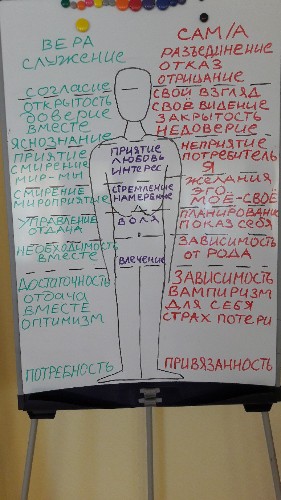 ВЕРА
СЛУЖЕНИЕ
СОГЛАСИЕ
ОТКРЫТОСТЬ
ДОВЕРИЕ
ВМЕСТЕ
ЯСНОЗНАНИЕ
ПРИЯТИЕ
СМИРЕНИЕ
МИР-МЫ
СМИРЕНИЕ
МИРОПРИЯТИЕ
УПРАВЛЕНИЕ
ОТДАЧА
НЕОБХОДИМОСТЬ
ВМЕСТЕ
ДОСТАТОЧНОСТЬ
ОТДАЧА
ВМЕСТЕ
ОПТИМИЗМ
ПОТРЕБНОСТЬ
ПРИЯТИЕ
ЛЮБОВЬ
ИНТЕРЕС
СТРЕМЛЕНИЕ
НАМЕРЕНИЕ
ВОЛЯ
ВЛЕЧЕНИЕ
САМ/А
РАЗЪЕДИНЕНИЕ
ОТКАЗ
ОТРИЦАНИЕ
СВОЙ ВЗГЛЯД
СВОЁ ВИДЕНИЕ
ЗАКРЫТОСТЬ
НЕДОВЕРИЕ
НЕПРИЯТИЕ
ПОТРЕБИТЕЛЬ
Я
ЖЕЛАНИЯ
ЭГО
МОЁ-СВОЁ
ПЛАНИРОВАНИЕ
ПОКАЗ СЕБЯ
ЗАВИСИМОСТЬ
ОТ РОДА
ЗАВИСИМОСТЬ
ВАМПИРИЗМ
ДЛЯ СЕБЯ
СТРАХ ПОТЕРИ
ПРИВЯЗАННОСТЬ